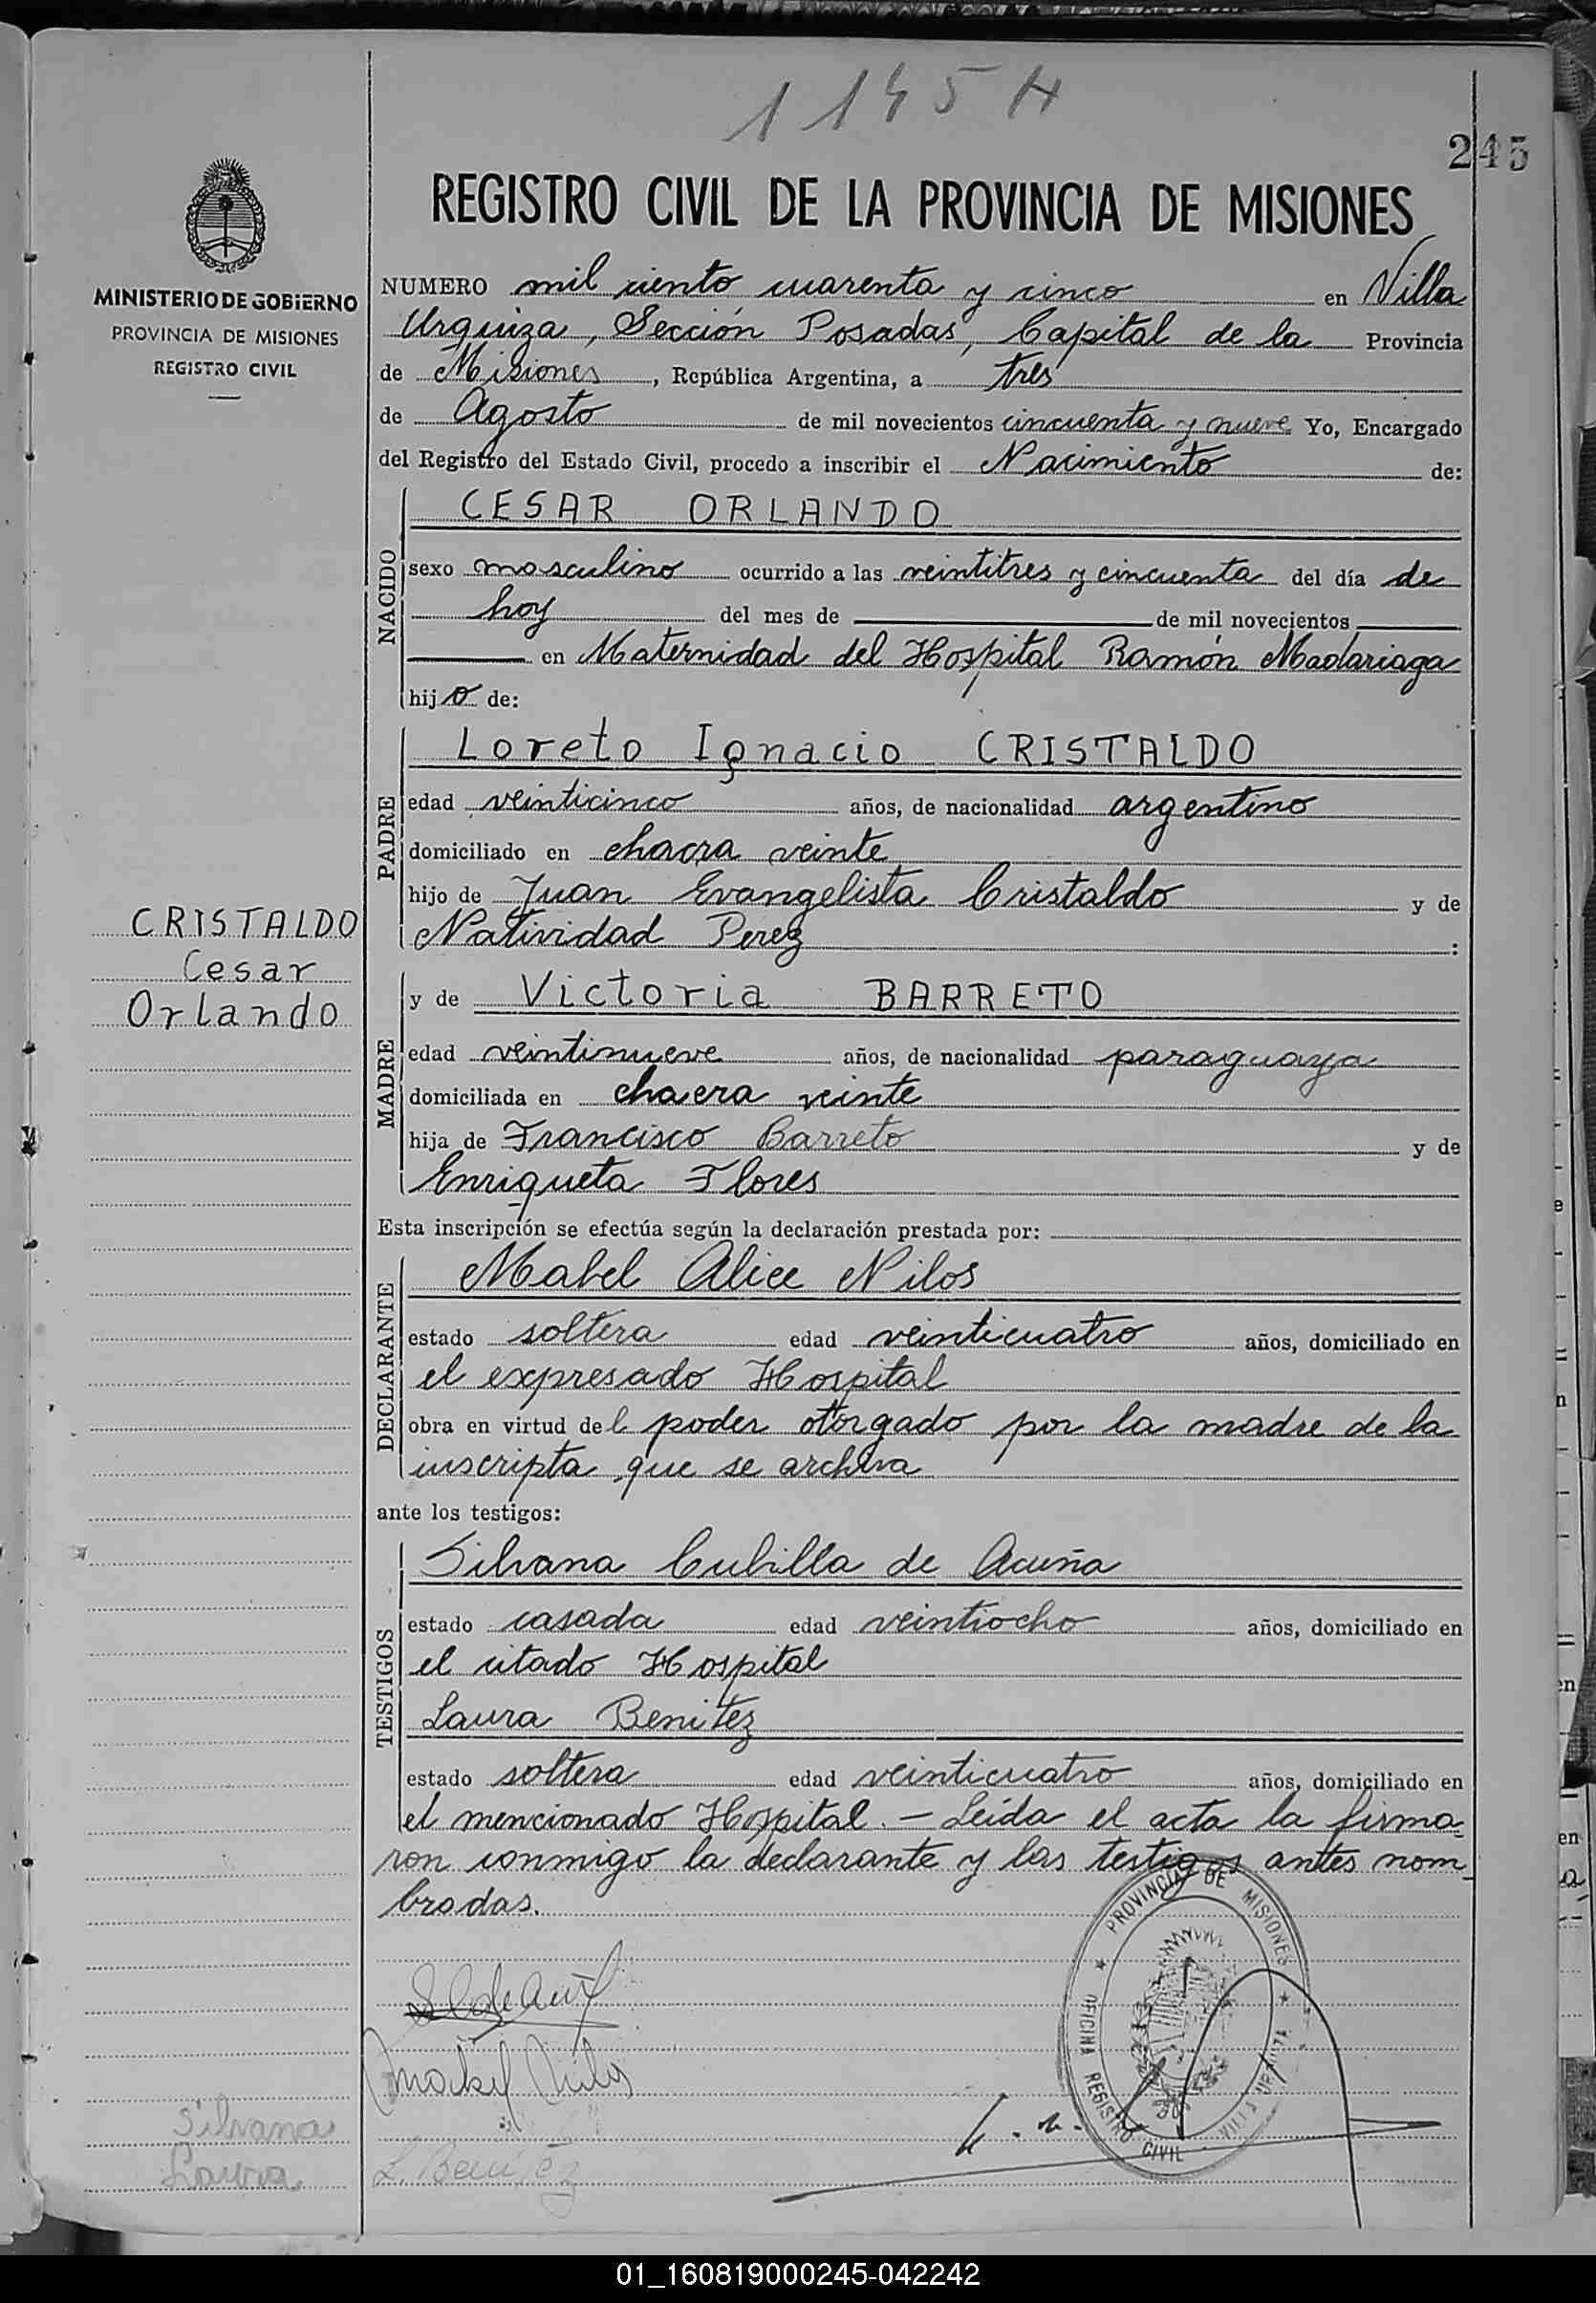 1145 H
245
REGISTRO CIVIL DE LA PROVINCIA DE MISIONES
MINISTERIO DE GOBIERNO
PROVINCIA DE MISIONES
REGISTRO CIVIL
NUMERO mil ciento cuarenta y cinco en Villa
Urquiza, Sección Posadas, Capital de la Provincia
de Misiones, República Argentina, a tres
de Agosto de mil novecientos cincuenta y nueve Yo, Encargado
del Registro del Estado Civil, procedo a inscribir el Nacimiento de:
NACIDO
CESAR ORLANDO
sexo masculino ocurrido a las veintitres y cincuenta del día de
hoy del mes de de mil novecientos
en Maternidad del Hospital Ramón Madariaga
hijo de:
PADRE
Loreto Ignacio CRISTALDO
edad veinticinco años, de nacionalidad argentino
domiciliado en chacra veinte
hijo de Juan Evangelista Cristaldo y de
Natividad Perez :
CRISTALDO
Cesar
Orlando
MADRE
y de Victoria BARRETO
edad veintinueve años, de nacionalidad paraguaya
domiciliada en chacra veinte
hija de Francisco Barreto y de
Enriqueta Flores
Esta inscripción se efectúa según la declaración prestada por:
DECLARANTE
Mabel Alice Nilos
estado soltera edad veinticuatro años, domiciliado en
el expresado Hospital
obra en virtud del poder otorgado por la madre de la
inscripta que se archiva
ante los testigos:
TESTIGOS
Silvana Cubilla de Acuña
estado casada edad veintiocho años, domiciliado en
el citado Hospital
Laura Benitez
estado soltera edad veinticuatro años, domiciliado en
el mencionado Hospital. - Leída el acta la firma
ron conmigo la declarante y las testigos antes nom
bradas.
PROVINCIA DE MISIONES
OFICINA REGISTRO CIVIL VILLA URQUIZA
Mabel Nilos
Silvana
Laura
L. Benitez
01_160819000245-042242